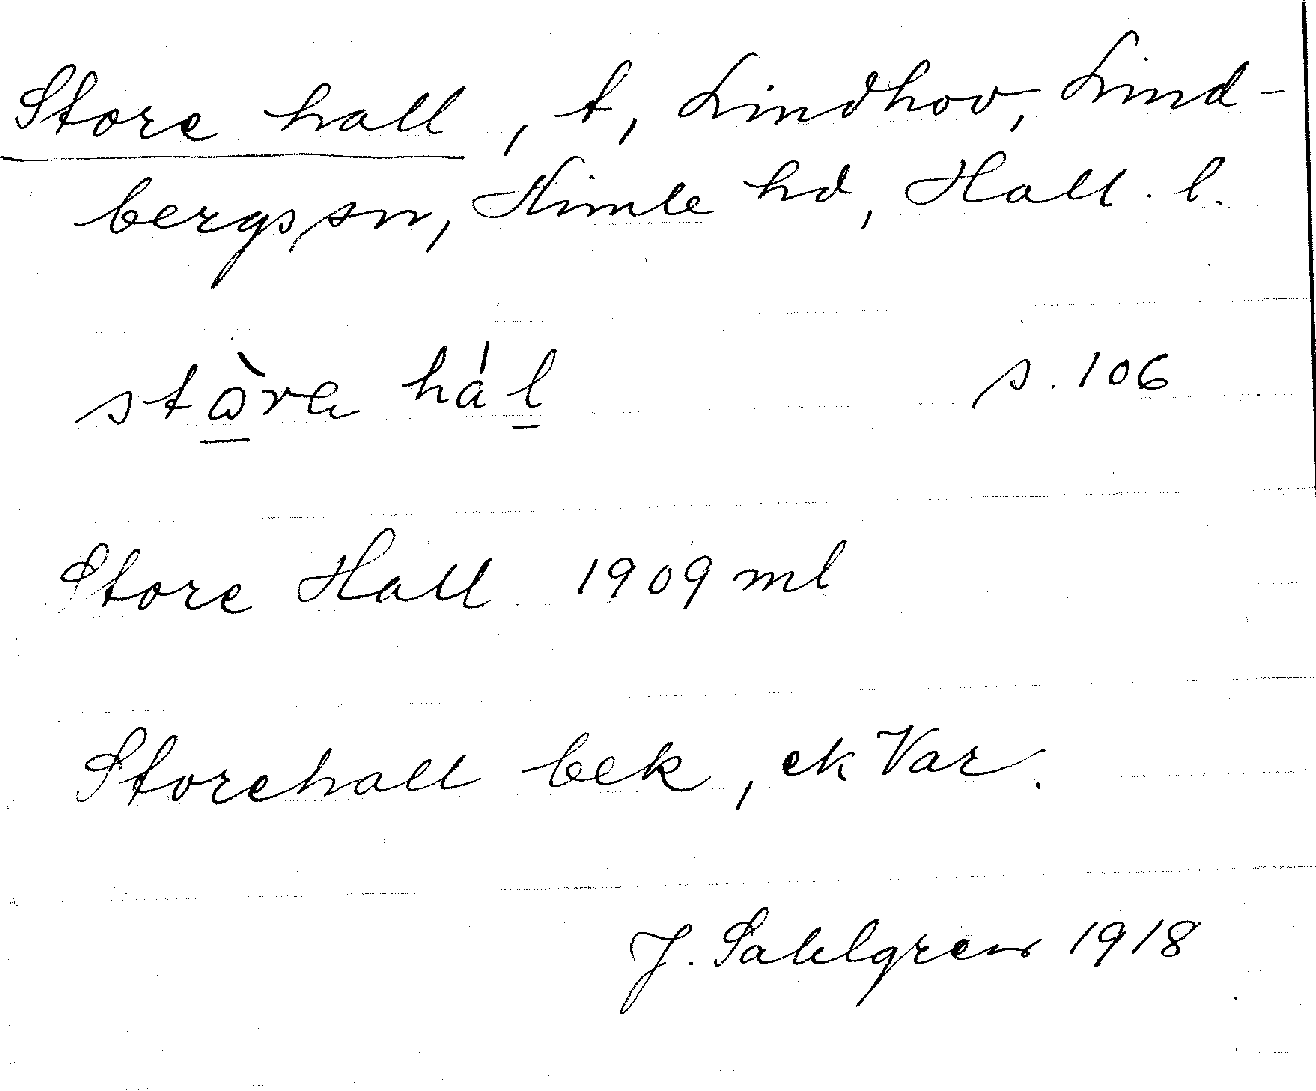 Store hall, t, Lindhov, Lind-
bergs sn, Himle hd, Hall. l.
stò̱ra há'l̲ s. 106
Store Hall 1909 ml
Storehall bek, ek Var.
J. Sahlgren 1918